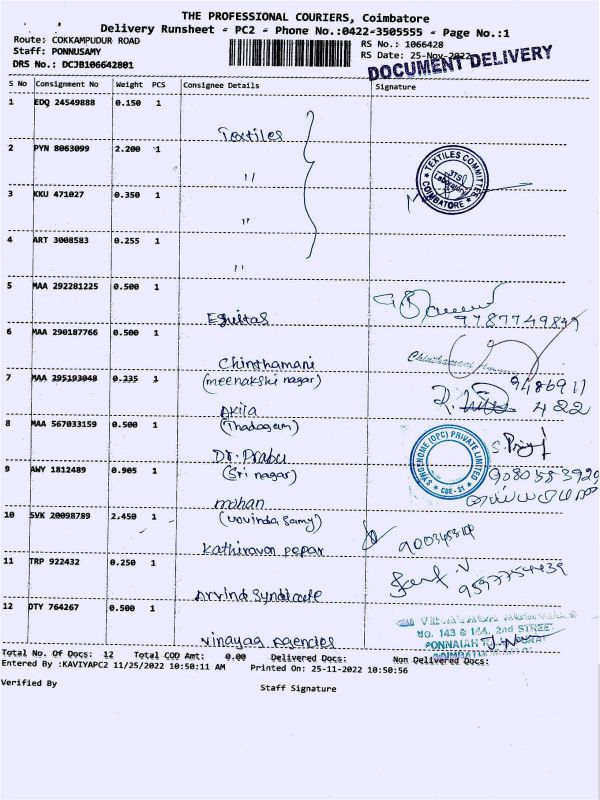 THE PROFESSIONAL COURIERS, Coimbatore
Delivery Runsheet - PC2 - Phone No.:0422-3505555 - Page No.:1
Route: COKKAMPUDUR ROAD
RS No.: 1066428
Staff: PONNUSAMY
RS Date: 25-Nov-2022
DRS No.: DCJB106642801
DOCUMENT DELIVERY
S No Consignment No Weight PCS Consignee Details Signature
1 EDQ 24549888 0.150 1
Textiles
2 PYN 8063099 2.200 1
"
TEXTILES COMMITTEE
Laboratory
COIMBATORE
3 KKU 471027 0.350 1
"
4 ART 3008583 0.255 1
"
5 MAA 292281225 0.500 1
Equitas
6 MAA 290187766 0.500 1
Chinthamani
(meenakshi nagar)
7 MAA 295193048 0.235 1
Akila
(Thadagam)
9486911
422
8 MAA 567033159 0.500 1
Dr. Prabu
(Sri nagar)
SYNGENOME (OPC) PRIVATE LIMITED
CBE
9 AWY 1812489 0.905 1
mohan
(Govinda Samy)
10 SVK 20098789 2.450 1
Kathiravan pepar
11 TRP 922432 0.250 1
Arvind Syndicate
12 DTY 764267 0.500 1
Vinayag Agencies
No. 143 & 144, 2nd STREET
Total No. Of Docs: 12 Total COD Amt: 0.00 Delivered Docs: Non Delivered Docs:
Entered By :KAVIYAPC2 11/25/2022 10:50:11 AM Printed On: 25-11-2022 10:50:56
Verified By
Staff Signature